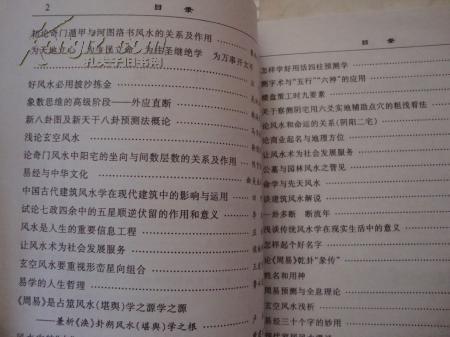 2 目录
初论奇门遁甲与河图洛书风水的关系及作用
为万事开太平
好风水必用披沙拣金
象数思维的高级阶段——外应直断
新八卦图及新天干八卦预测法概论
浅论玄空风水
论奇门风水中阳宅的坐向与间数层数的关系及作用
易经与中华文化
中国古代建筑风水学在现代建筑中的影响与运用
试论七政四余中的五星顺逆伏留的作用和意义
风水是人生的重要信息工程
让风水术为社会发展服务
玄空风水要重视形峦星向组合
易学的人生哲理
《周易》是占筮风水(堪舆)学之源学之源
——兼析《涣》卦朔风水(堪舆)学之根
目录
怎样学好用活四柱预测学
测字术与“五行”“六神”的应用
楼盘策工时九要素
关于察测阴宅用六爻实地辅助点穴的粗浅看法
论风水和命运的关系(阴阳二宅)
论商业起名与地理方位
让风水术为社会发展服务
公墓与园林风水之管见
命学与先天风水
谈建筑风水解说
一卦多断 断流年
浅谈传统风水学在现实生活中的意义
怎样起个好名字
论《周易》乾卦“象传”
姓名和用神
周易预测与全息理论
玄空风水浅析
易经三十个字的妙用